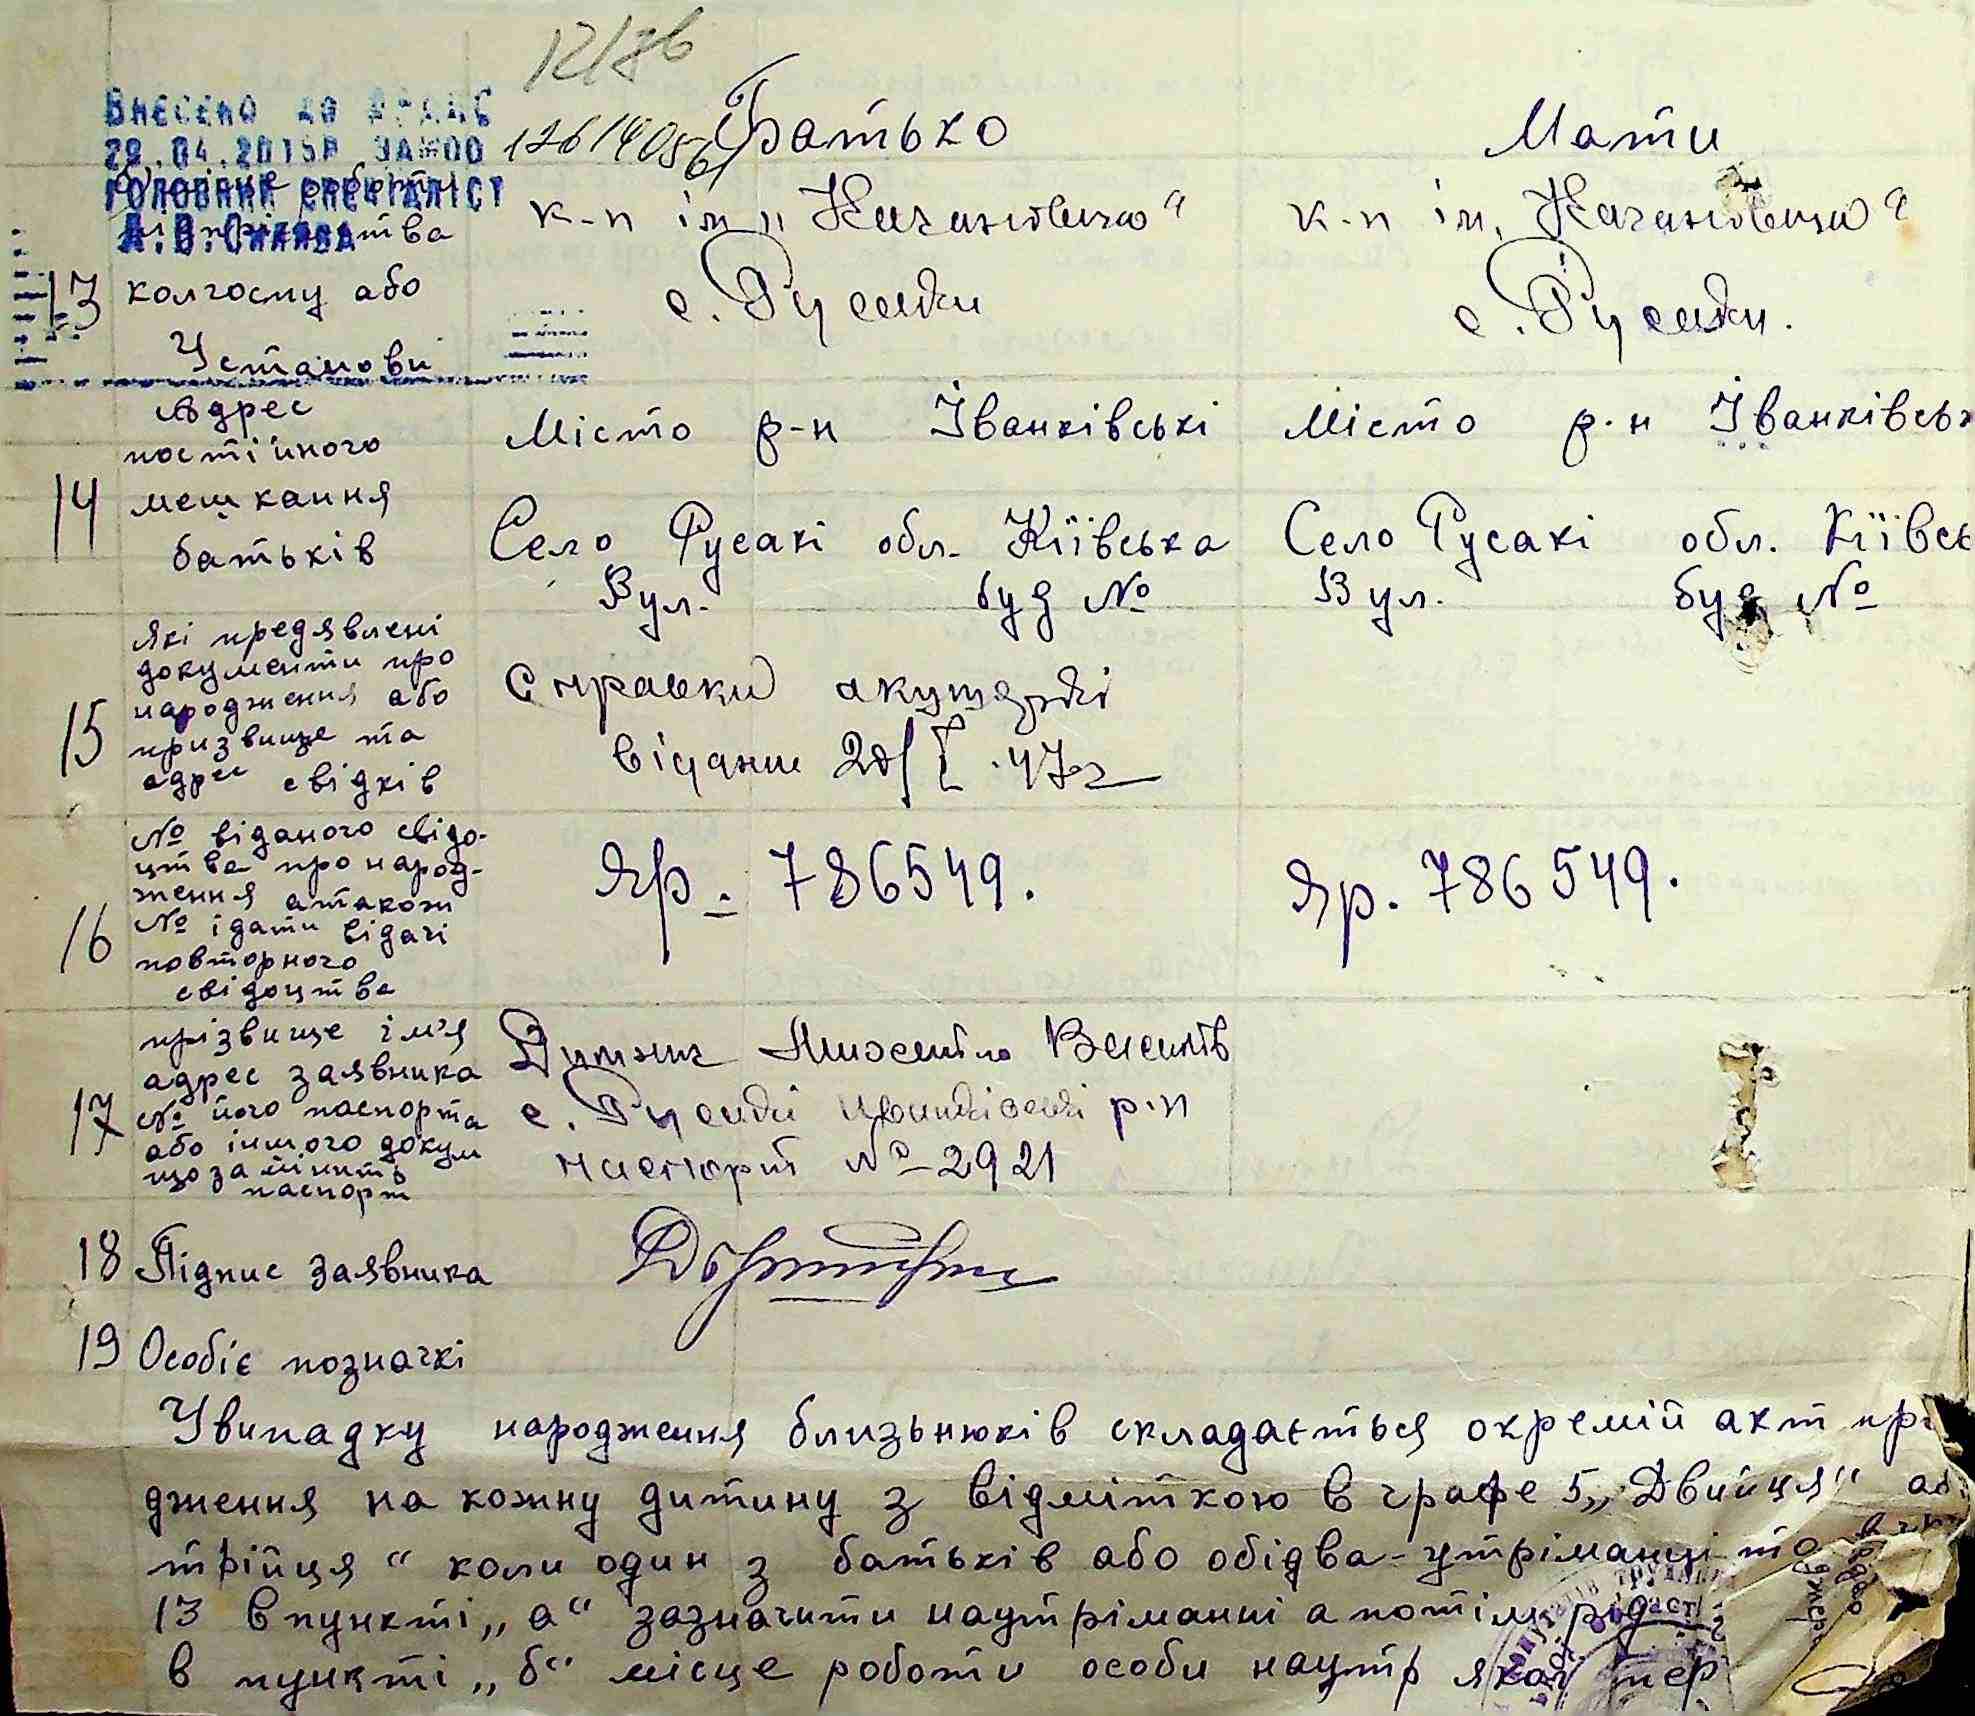 12/76
ВНЕСЕНО ДО ДРАЦС
29.04.2015Р ЗАМОО
12614056
ГОЛОВНИЙ СПЕЦІАЛІСТ
Батько Мати
к-п ім „Кагановича“ к-п ім „Кагановича“
с. Русаки с. Русаки.
13 колгоспу або
Установи
Адрес
постійного
14 мешкання
батьків
Місто р-н Іванківські Місто р-н Іванківськ
Село Русакі обл. Київська Село Русакі обл. Київсь
Вул. буд № Вул. буд №
15 які предявлені
документи про
народження або
призвище та
адрес свідків
Справки акушеркі
відани 28/I.47г
16 № віданого свідо-
цтва про народ-
ження атакож
№ ідати відачі
повторного
свідоцтва
Яр. 786549. Яр. 786549.
17 прізвище ім'я
адрес заявника
№ його паспорта
або іншого докум
що замінить
паспорт
Михайло Василів
с. Русакі р-н
паспорт № 2921
18 Підпис заявника
19 Особіє позначкі
Увипадку народження близьнюків складається окремій акт пр
дження на кожну дитину з відміткою в графе 5 „Двийця“ аб
трійця“ коли один з батьків або обідва-утріманці то
13 впункті „а“ зазначити наутріманні а потім
в пункті „б“ місце роботи особи наутр якої пер